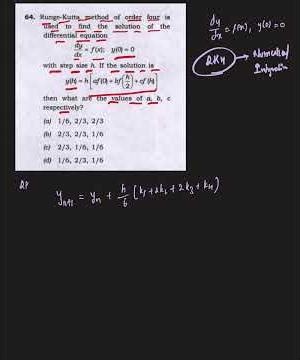 64. Runge-Kutta method of order four is
used to find the solution of the
differential equation
dy/dx = f(x); y(0) = 0
with step size h. If the solution is
y(h) = h [af(0) + bf(h/2) + cf(h)]
then what are the values of a, b, c
respectively?
(a) 1/6, 2/3, 2/3
(b) 2/3, 2/3, 1/6
(c) 2/3, 1/6, 1/6
(d) 1/6, 2/3, 1/6
dy/dx = f(x), y(0) = 0
RK4 → Numerical
yₙ₊₁ = yₙ + h/6 [k₁ + 2k₂ + 2k₃ + k₄]